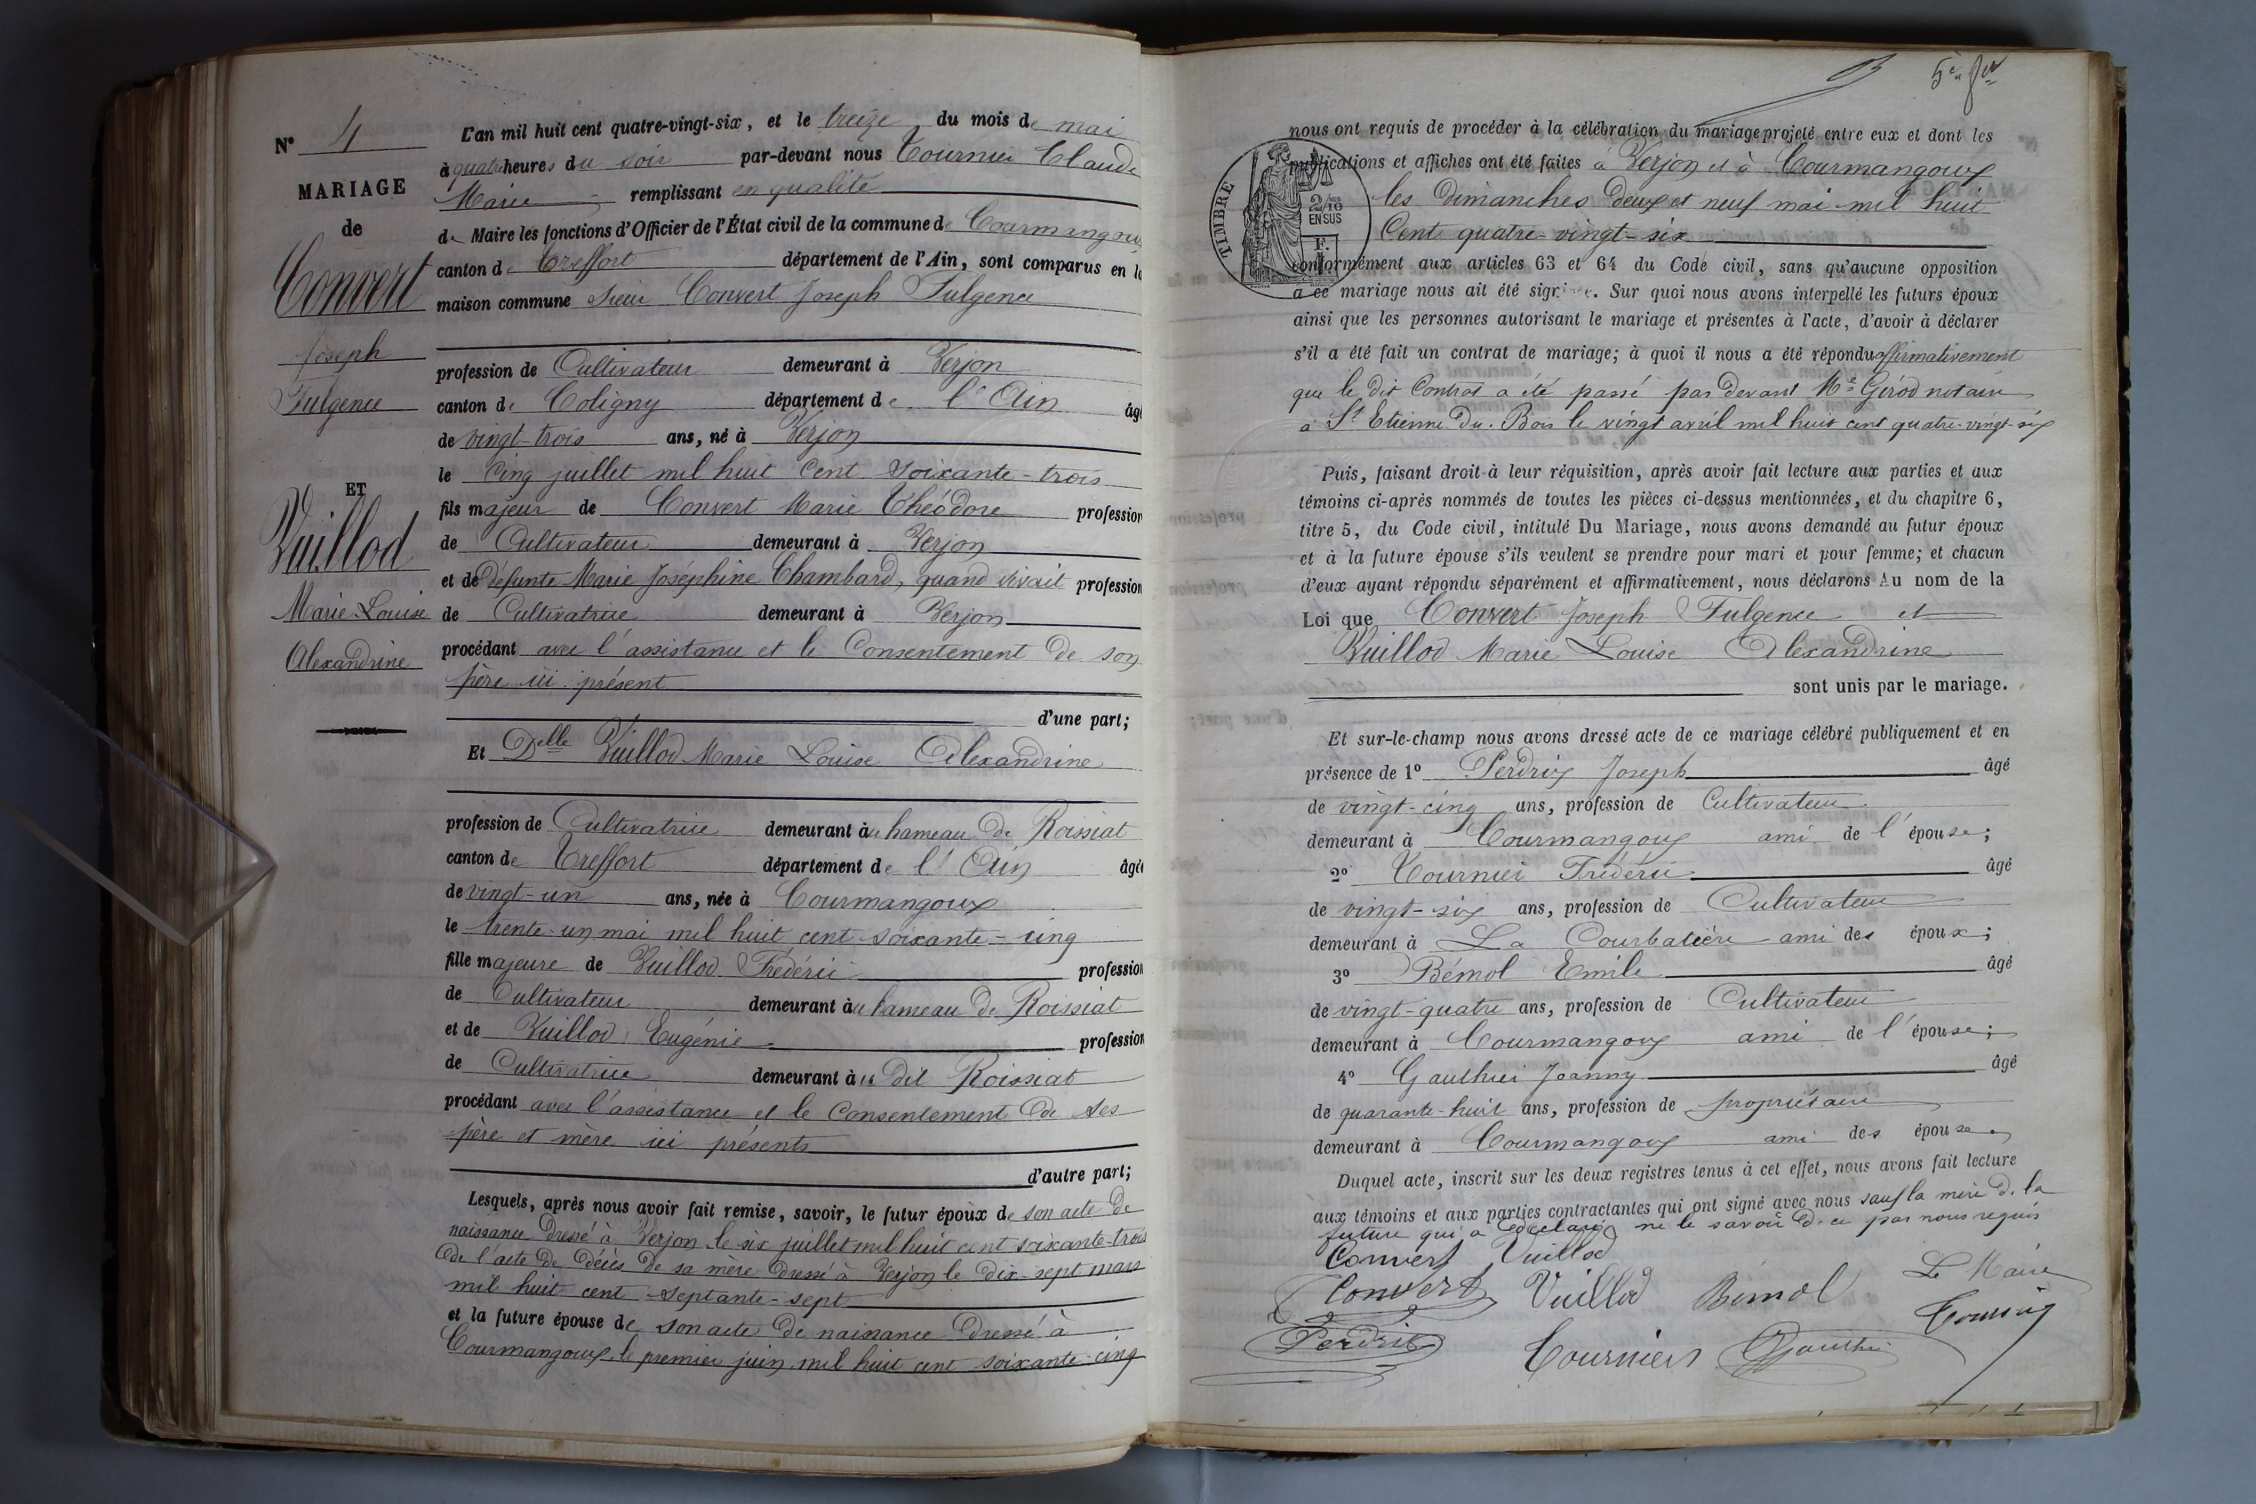 N° 4
MARIAGE
de
Convert
Joseph
Fulgence
ET
Vuillod
Marie Louise
Alexandrine
L'an mil huit cent quatre-vingt-six, et le treize du mois de mai
à quatre heures du soir par-devant nous Tournier Claude
Marie remplissant en qualité
de Maire les fonctions d'Officier de l'État civil de la commune de Courmangoux
canton de Treffort département de l'Ain, sont comparus en la
maison commune Sieur Convert Joseph Fulgence
profession de Cultivateur demeurant à Verjon
canton de Coligny département de l'Ain âgé
de vingt-trois ans, né à Verjon
le cinq juillet mil huit cent soixante-trois
fils majeur de Convert Marie Théodore profession
de Cultivateur demeurant à Verjon
et de défunte Marie Joséphine Chambard, quand vivait profession
de Cultivatrice demeurant à Verjon
procédant avec l'assistance et le Consentement de son
père ici présent
d'une part;
Et Delle Vuillod Marie Louise Alexandrine
profession de Cultivatrice demeurant au hameau de Roissiat
canton de Treffort département de l'Ain âgée
de vingt-un ans, née à Courmangoux
le trente-un mai mil huit cent soixante-cinq
fille majeure de Vuillod Frédéric profession
de Cultivateur demeurant au hameau de Roissiat
et de Vuillod Eugénie profession
de Cultivatrice demeurant à dit Roissiat
procédant avec l'assistance et le Consentement de ses
père et mère ici présents
d'autre part;
Lesquels, après nous avoir fait remise, savoir, le futur époux de son acte de
naissance dressé à Verjon le six juillet mil huit cent soixante-trois
de l'acte de décès de sa mère dressé à Verjon le dix-sept mars
mil huit cent septante-sept
et la future épouse de son acte de naissance dressé à
Courmangoux, le premier juin mil huit cent soixante-cinq
5e
TIMBRE
2/10
EN SUS
F.
nous ont requis de procéder à la célébration du mariage projeté entre eux et dont les
publications et affiches ont été faites à Verjon et à Courmangoux
les dimanches deux et neuf mai mil huit
Cent quatre-vingt-six
conformément aux articles 63 et 64 du Code civil, sans qu'aucune opposition
à ce mariage nous ait été signifiée. Sur quoi nous avons interpellé les futurs époux
ainsi que les personnes autorisant le mariage et présentes à l'acte, d'avoir à déclarer
s'il a été fait un contrat de mariage; à quoi il nous a été répondu affirmativement
que le dit Contrat a été passé par devant Me Girod notaire
à St Etienne du Bois le vingt avril mil huit cent quatre-vingt-six
Puis, faisant droit à leur réquisition, après avoir fait lecture aux parties et aux
témoins ci-après nommés de toutes les pièces ci-dessus mentionnées, et du chapitre 6,
titre 5, du Code civil, intitulé Du Mariage, nous avons demandé au futur époux
et à la future épouse s'ils veulent se prendre pour mari et pour femme; et chacun
d'eux ayant répondu séparément et affirmativement, nous déclarons Au nom de la
Loi que Convert Joseph Fulgence et
Vuillod Marie Louise Alexandrine
sont unis par le mariage.
Et sur-le-champ nous avons dressé acte de ce mariage célébré publiquement et en
présence de 1° Perdrix Joseph âgé
de vingt-cinq ans, profession de Cultivateur
demeurant à Courmangoux ami de l'épouse;
2° Tournier Frédéric âgé
de vingt-six ans, profession de Cultivateur
demeurant à La Courbatière ami des époux;
3° Bémol Emile âgé
de vingt-quatre ans, profession de Cultivateur
demeurant à Courmangoux ami de l'épouse;
4° Gauthier Joanny âgé
de quarante-huit ans, profession de propriétaire
demeurant à Courmangoux ami des épouse.
Duquel acte, inscrit sur les deux registres tenus à cet effet, nous avons fait lecture
aux témoins et aux parties contractantes qui ont signé avec nous sauf la mère de la
future qui a déclaré ne le savoir de ce par nous requis
Convert Vuillod
Convert Vuillod Bémol Le Maire
Perdrix Tournier Gauthier Tournier